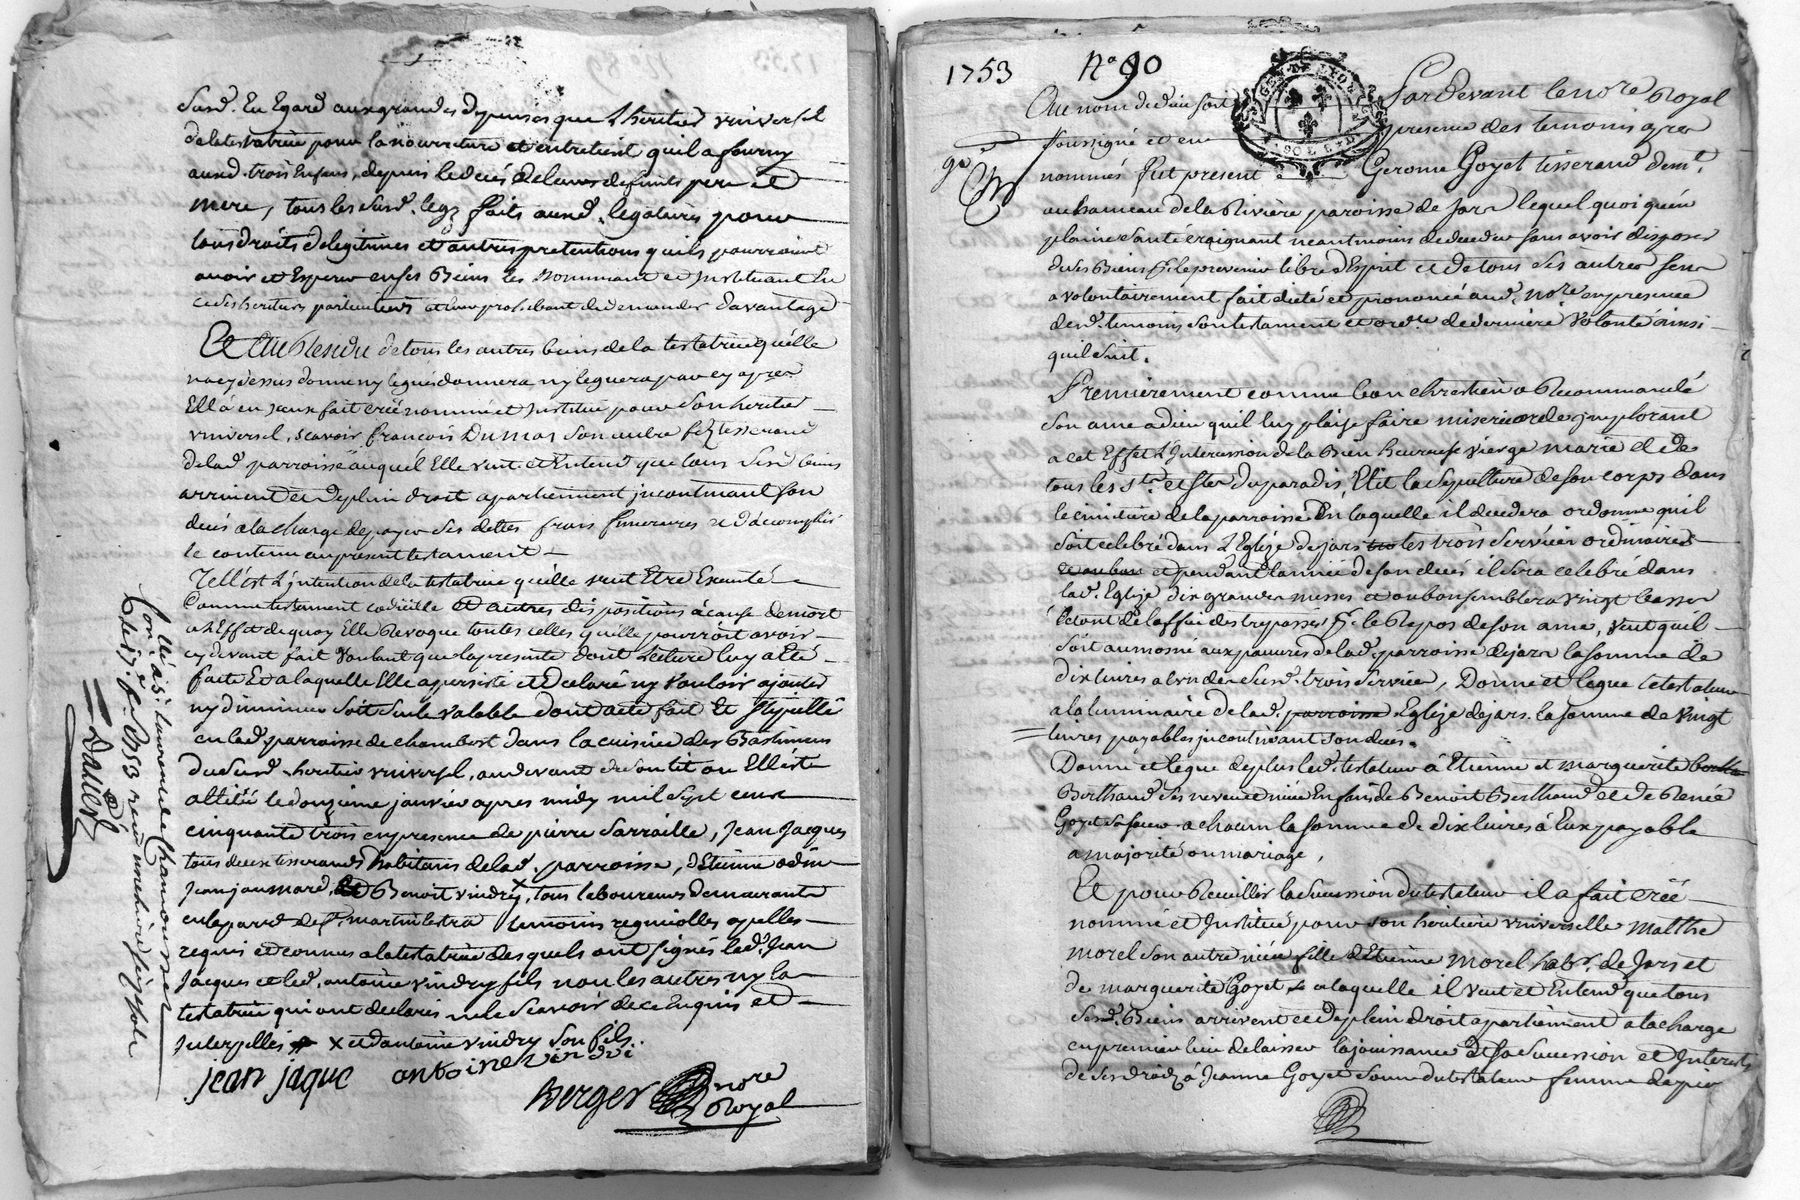 Susd. Eu Egard aux grandes depenses que L'heritier vniversel
de la testatrice pour la nourriture et entretient quil a fourny
auxd. trois Enfans, depuis le decés de leurs defunts pere et
mere, tous les Susd. legz faits auxd. legataires pour
tous droits de legitimes et autres pretentions quils pourroient
avoir et Esperer en ses Biens les Nommant et Instituant En
ce ses heritiers particuliers et leur prohibant de demander davantage
Et Au Residu de tous les autres biens de la testatrice quelle
na cy dessus donne ny legués donnera ny leguera par cy apres
Elle a en yceux fait creé nommé et Institué pour Son heritier
vniversel, scavoir françois Dumas Son autre filz tisserand
de lad. parroisse auquel Elle veut et Entend que tous Sesd. biens
arrivent et de plein droit apartiennent incontinant son
decés a la charge de payer Ses dettes frais funeraires et d'acomplir
le contenu au present testament
Tell'est L'intention de la testatrice quelle veut Etre Executé
Comme testament codicille et autres dispositions a cause de mort
a L'Effet de quoy Elle Revoque toutes celles quelle pourroit avoir
cy devant fait voulant que la presente dont Lecture luy a Eté
faite Et a laquelle Elle a persisté et Declaré ny vouloir ajouter
ny diminuer soit seule valable dont acte fait Et Stipullé
en lad. parroisse de chambost dans la cuisine des Bastimens
du Susd. heritier vniversel, au devant de son lit ou Elle ste
allitée le douzieme janvier apres midy mil sept cent
cinquante trois en presence de pierre Sarraille, Jean Jacques
tous deux tisserands habitans de lad. parroisse, d'Etienne
Jean jaumard, Benoit vindry x, tous laboureurs demeurants
en la paroisse de St martin lestra temoins requis et apelles
requis et connus a la testatrice desquels ont signés led. Jean
Jacques et led. antoine vindry fils non les autres ny la
testatrice qui ont declarés ne le Scavoir de ce Enquis et
Interpellés x et d'antoine vindry Son fils.
jean jaque antoine vindri
Berger nore
Royal
Con.lé a St laurent de Chamousset
le 17e jer 1753 reçu
1753 No 90
Au nom de dieu soit Pardevant le nore Royal
soussigné et en presence des temoins apres
nommés fut present Gerome Goyet tisserand demt.
au hameau de la Riviere paroisse de Jars lequel quoi qu'en
plaine santé craignant neantmoins de deceder sans avoir disposer
de ses Biens pr. le prevenir libre d'Esprit et de tous Ses autres sens
a volontairement fait dicté et prononcé aud. nore en presence
desd. temoins Son testament et ordce de derniere volonté ainsi
quil suit.
Premierement comme bon chrestien a Recommandé
Son ame a dieu quil luy plaise faire misericorde implorant
a cet Effet L'Intercession de la Bien heureuse vierge marie et de
tous les Sts. et stes du paradis, Elit la Sepulture de Son corps dans
le cimitiere de la parroisse En laquelle il decedera ordonne quil
soit celebré dans L'Eglize de jars les trois Services ordinaires
et pendant l'année de son decés il sera celebré dans
lad. Eglize dix grandes messes et au bout vingt basses
de l'office des trepassés pr. le Repos de son ame, veut quil
Soit aumosné aux pauvres de lad. parroisse de jars la somme de
dix livres a l'vn des Susd. trois Services, Donne et legue le testateur
a la luminaire de lad. parroisse Eglize de jars la somme de vingt
livres payables incontinant son decés.
Donne et legue de plus led. testateur à Etienne et marguerite
Berthaud Ses neveu et niece Enfans de Benoit Berthaud et de Renée
Goyet Sa soeur a chacun la somme de dix livres à Eux payable
a majorité ou mariage,
Et pour Recuillir la Succession du testateur il a fait creé
nommé et Institué pour Son heritiere vniverselle Matthe
morel Son autre niece fille d'Etienne Morel habt. de Jars et
de marguerite Goyet a laquelle il veut et Entend que tous
Sesd. Biens arrivent et de plein droit apartiennent a la charge
en premier lieu de laisser la jouissance de Sa Succession et Interests
de Ses droits à Jeanne Goyet Soeur du testateur femme de pier